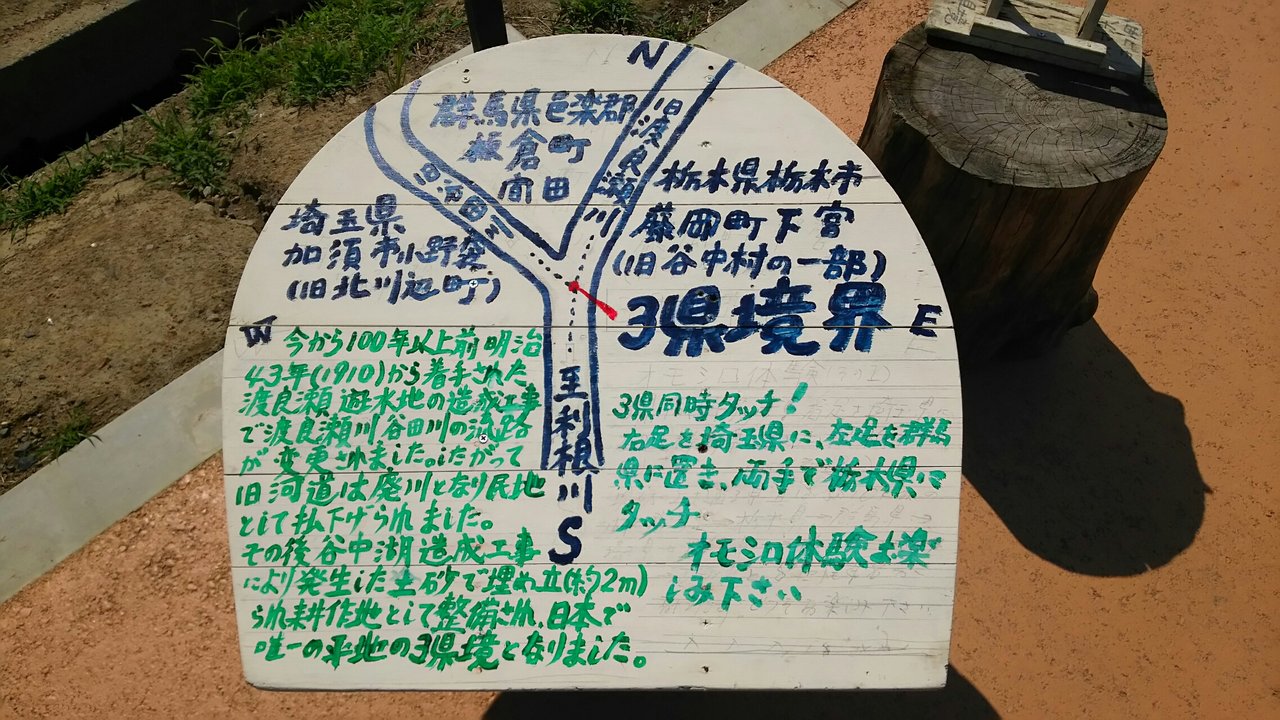 N
旧渡良瀬川
群馬県邑楽郡
板倉町
旧谷田川
栃木県栃木市
藤岡町下宮
(旧谷中村の一部)
埼玉県
加須市小野袋
(旧北川辺町)
3県境界
E
W
今から100年以上前明治
43年(1910)から着手された
渡良瀬遊水地の造成工事
で渡良瀬川谷田川の流路
が変更されました。したがって
旧河道は廃川となり民地
として払下げられました。
その後谷中湖造成工事
により発生した土砂で埋め立(約2m)
られ耕作地として整備され、日本で
唯一の平地の3県境となりました。
至利根川
S
3県同時タッチ!
右足を埼玉県に、左足を群馬
県に置き、両手で栃木県に
タッチ
オモシロ体験お楽
しみ下さい